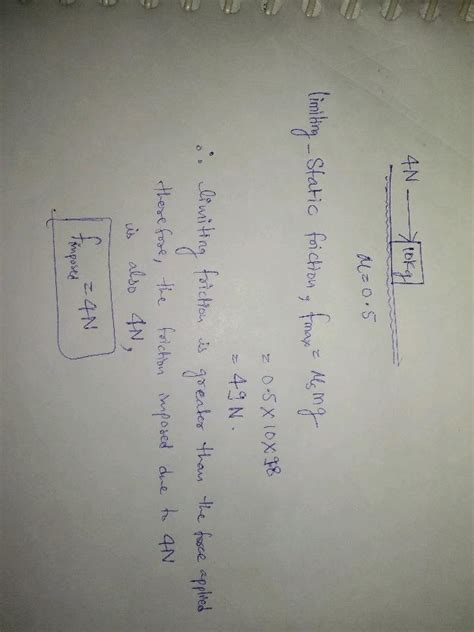 4N → 10kg
μ = 0.5
limiting - Static friction, fmax = μs mg
= 0.5 × 10 × 9.8
= 49 N.
∴ limiting friction is greater than the force applied
therefore, the friction imposed due to 4N
is also 4N,
fimposed = 4N